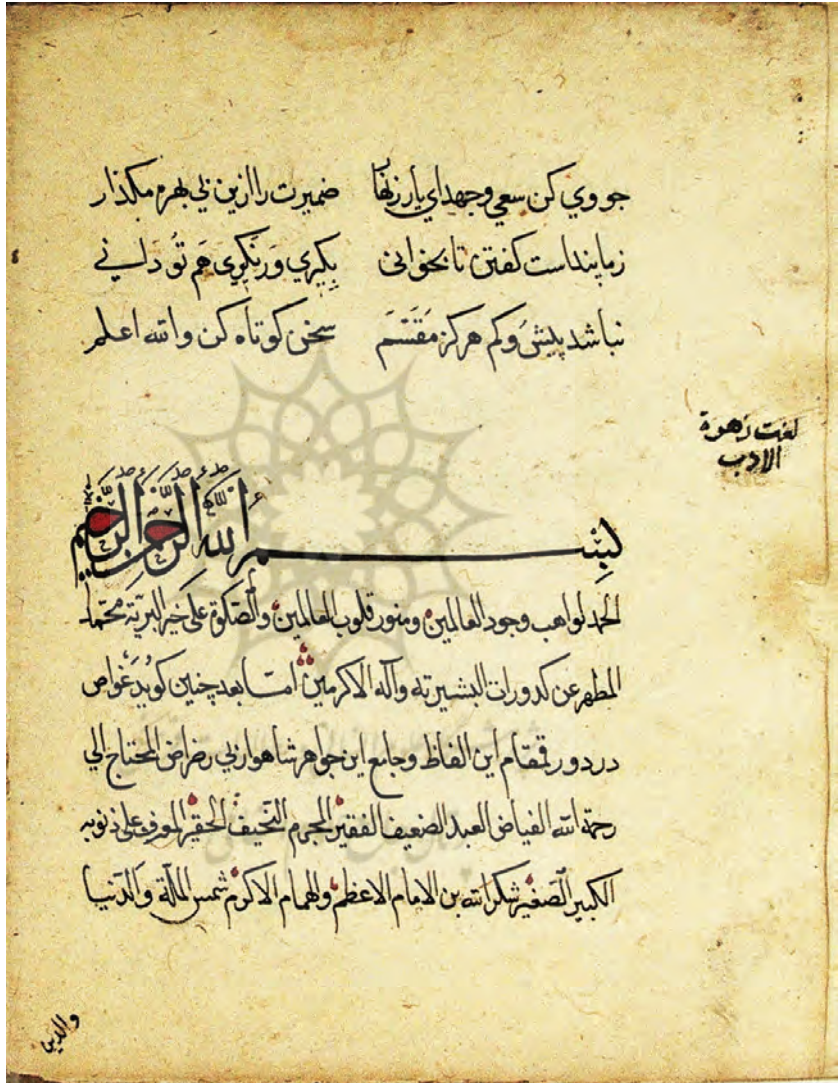 جو وي كن سعي وجهد اي يار زنهار ضميرت را ازين بي بهره مكذار
زما پنداست كفتن تا بخواني بِكيري وَر نَكيرى هَم تُو داني
نباشد پيش وكم هركز مُقَسَّم سخن كوتاه كن والله اعلم
لغت زهرة
الادب
بسم الله الرحمن الرحيم
الحمد لواهب وجود العالمين ومنور قلوب العالمين والصلوة على خير البرية محمد
المطهر عن كدورات البشيرته وآله الاكرمين امّا بعد چنين كويد غواص
دردور قمقام اين الفاظ وجامع اين جواهر شاهوار بي رضراض المحتاج الي
رحمة الله الفياض العبد الضعيف الفقير المجرم النحيف الحقير المعرف على ذنوبه
الكبير الصغير شكرالله بن الامام الاعظم والهمام الاكرم شمس الملّة والدّنيا
والدين